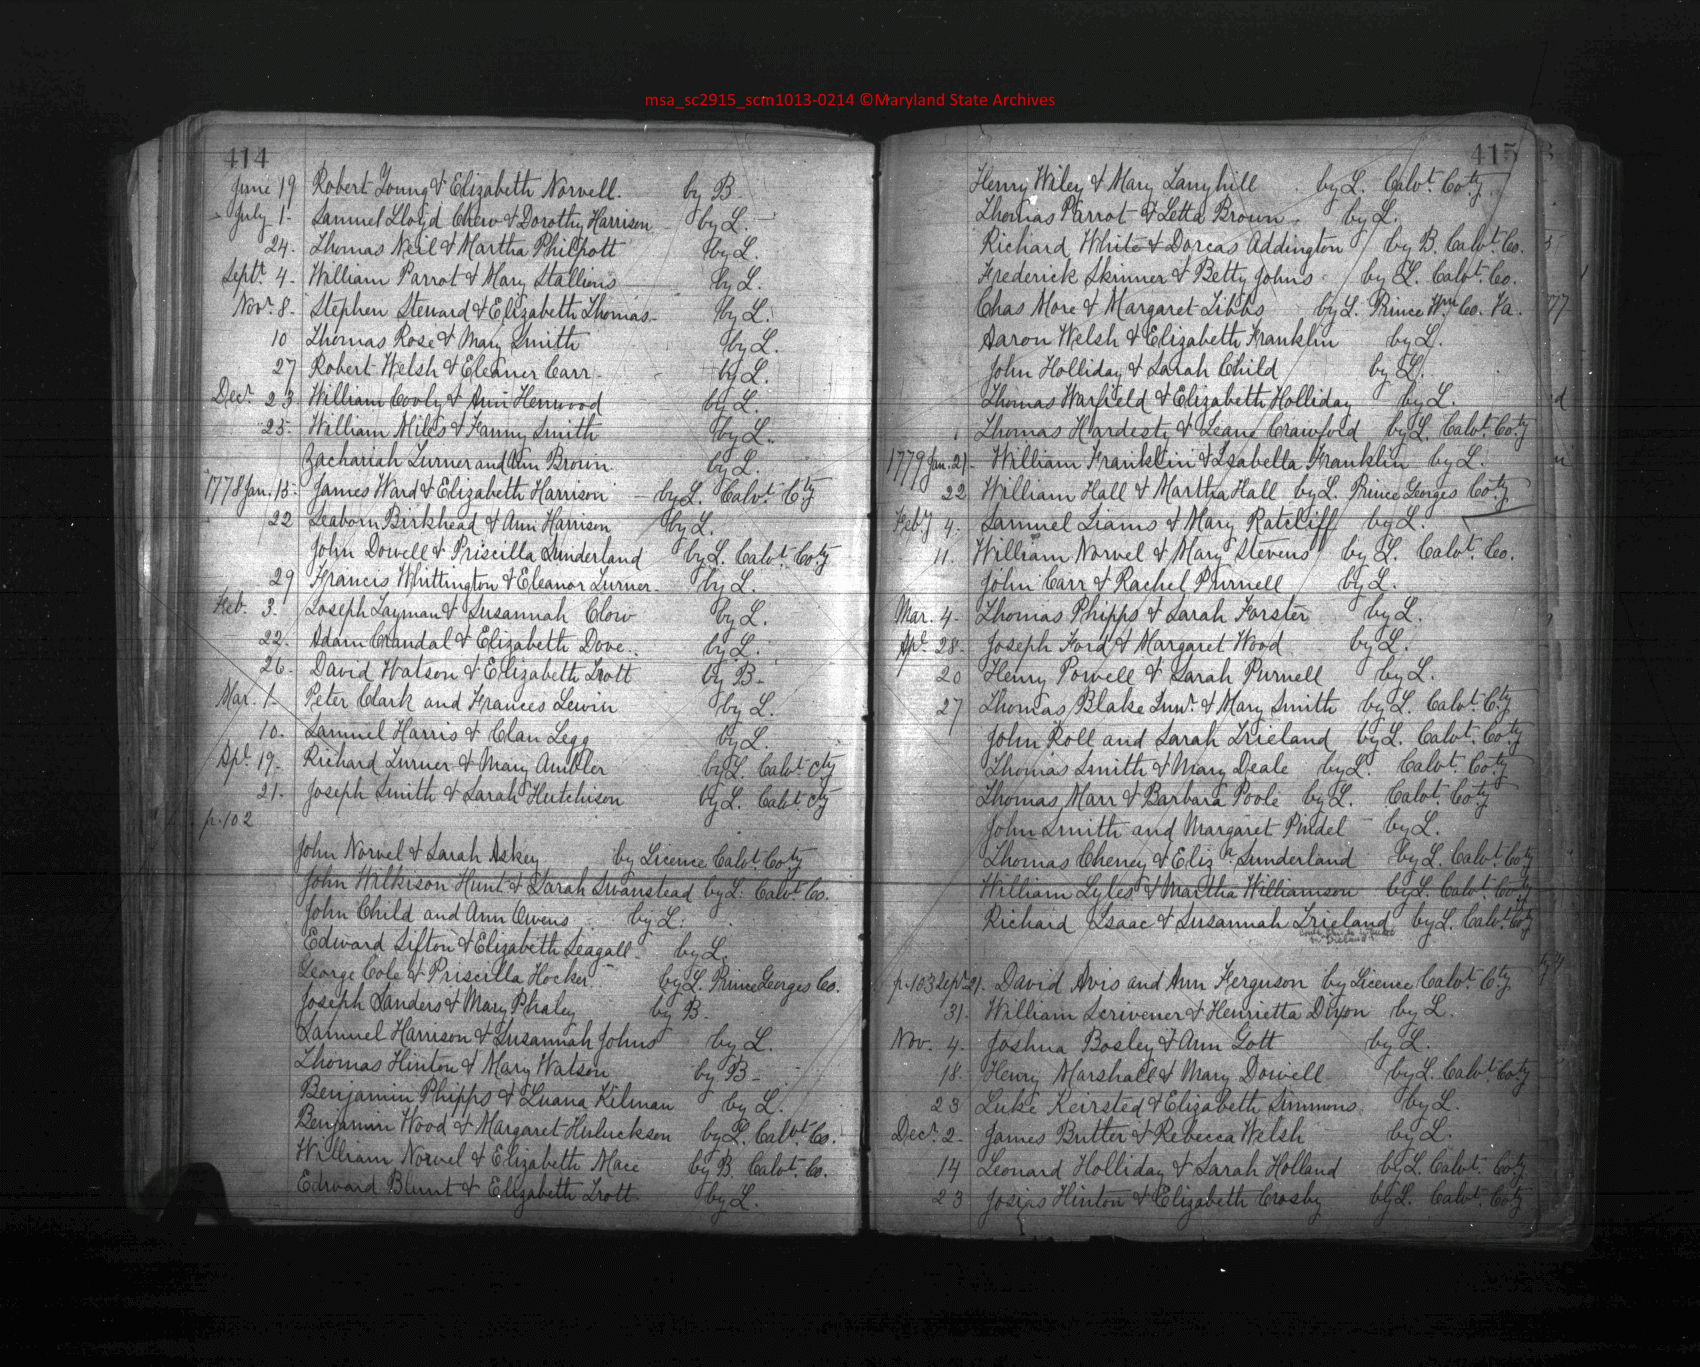 msa_sc2915_scm1013-0214 ©Maryland State Archives
414
June 19 Robert Young & Elizabeth Norvell. by B.
July 1. Samuel Lloyd Chew & Dorothy Harrison by L.
24. Thomas Neil & Martha Philpott by L.
Septr. 4. William Parrot & Mary Stallions by L.
Novr. 8. Stephen Steward & Elizabeth Thomas by L.
10 Thomas Rose & Mary Smith by L.
27 Robert Welsh & Eleaner Carr by L.
Decr. 23 William Covly & Ann Henwood by L.
25. William Miles & Fanny Smith by L.
Zachariah Turner and Ann Brown by L.
1778 Jan. 15. James Ward & Elizabeth Harrison by L. Calvt. Cty
22 Seaborn Birkhead & Ann Harrison by L.
John Dowell & Priscilla Sunderland by L. Calvt. Coty
29 Francis Whittington & Eleanor Turner by L.
Feb. 3. Joseph Layman & Susannah Clow by L.
22. Adam Crandal & Elizabeth Dove by L.
26. David Watson & Elizabeth Trott by B.
Mar. 1. Peter Clark and Frances Lewin by L.
10. Samuel Harris & Clan Legg by L.
Apl. 19. Richard Turner & Mary Ambler by L. Calvt Cty
21. Joseph Smith & Sarah Hutchison by L. Calvt Cty
p. 102
John Norvel & Sarah Askey by Licence Calvt Coty
John Wilkison Hunt & Sarah Swanstead by L. Calvt. Co.
John Child and Ann Owens by L.
Edward Sifton & Elizabeth Seagall by L.
George Cole & Priscilla Hocker by L. Prince Georges Co.
Joseph Sanders & Mary Phaley by B.
Samuel Harrison & Susannah Johns by L.
Thomas Hinton & Mary Watson by B
Benjamin Phipps & Luana Kilman by L.
Benjamin Wood & Margaret by L. Calvt. Co.
William Norvel & Elizabeth Mace by B. Calvt. Co.
Edward Blunt & Elizabeth Trott by L.
415
Henry Wiley & Mary Lanyhill by L. Calvt. Coty.
Thomas Parrot & Letta Brown by L.
Richard White & Dorcas Addington by B. Calvt. Co.
Frederick Skinner & Betty Johns by L. Calvt. Co.
Chas More & Margaret Tibbs by L. Prince Wm Co. Va.
Aaron Welsh & Elizabeth Franklin by L.
John Holliday & Sarah Child by L.
Thomas Warfield & Elizabeth Holliday by L.
Thomas Hardesty & Leane Crawfold by L. Calvt. Coty
1779 Jan. 21. William Franklin & Isabella Franklin by L.
22 William Hall & Martha Hall by L. Prince Georges Coty
Feby 4. Samuel Liams & Mary Ratcliff by L.
11. William Norvel & Mary Stevens by L. Calvt. Co.
John Carr & Rachel Purnell by L.
Mar. 4. Thomas Phipps & Sarah Forster by L.
Apl. 28. Joseph Ford & Margaret Wood by L.
20 Henry Powell & Sarah Purnell by L.
27 Thomas Blake Junr. & Mary Smith by L. Calvt. Cty
John Roll and Sarah Irieland by L. Calvt. Coty
Thomas Smith & Mary Deale by L. Calvt. Coty
Thomas Marr & Barbara Poole by L. Calvt. Coty
John Smith and Margaret Pindel by L.
Thomas Cheney & Eliza Sunderland by L. Calvt. Coty
William Lyles & Martha Williamson by L. Calvt. Coty
Richard Isaac & Susannah Irieland by L. Calvt. Coty
p. 103 Sepr. 21. David Avis and Ann Ferguson by Licence Calvt. Cty
31. William Scrivener & Henrietta Dixon by L.
Nov. 4. Joshua Bosley & Ann Gott by L.
18. Henry Marshall & Mary Dowell by L. Calvt. Coty
23 Luke Keirsted & Elizabeth Simmons by L.
Decr. 2. James Butter & Rebecca Welsh by L.
14 Leonard Holliday & Sarah Holland by L. Calvt. Coty
23 Hinton & Elizabeth Crosby by L. Calvt. Coty